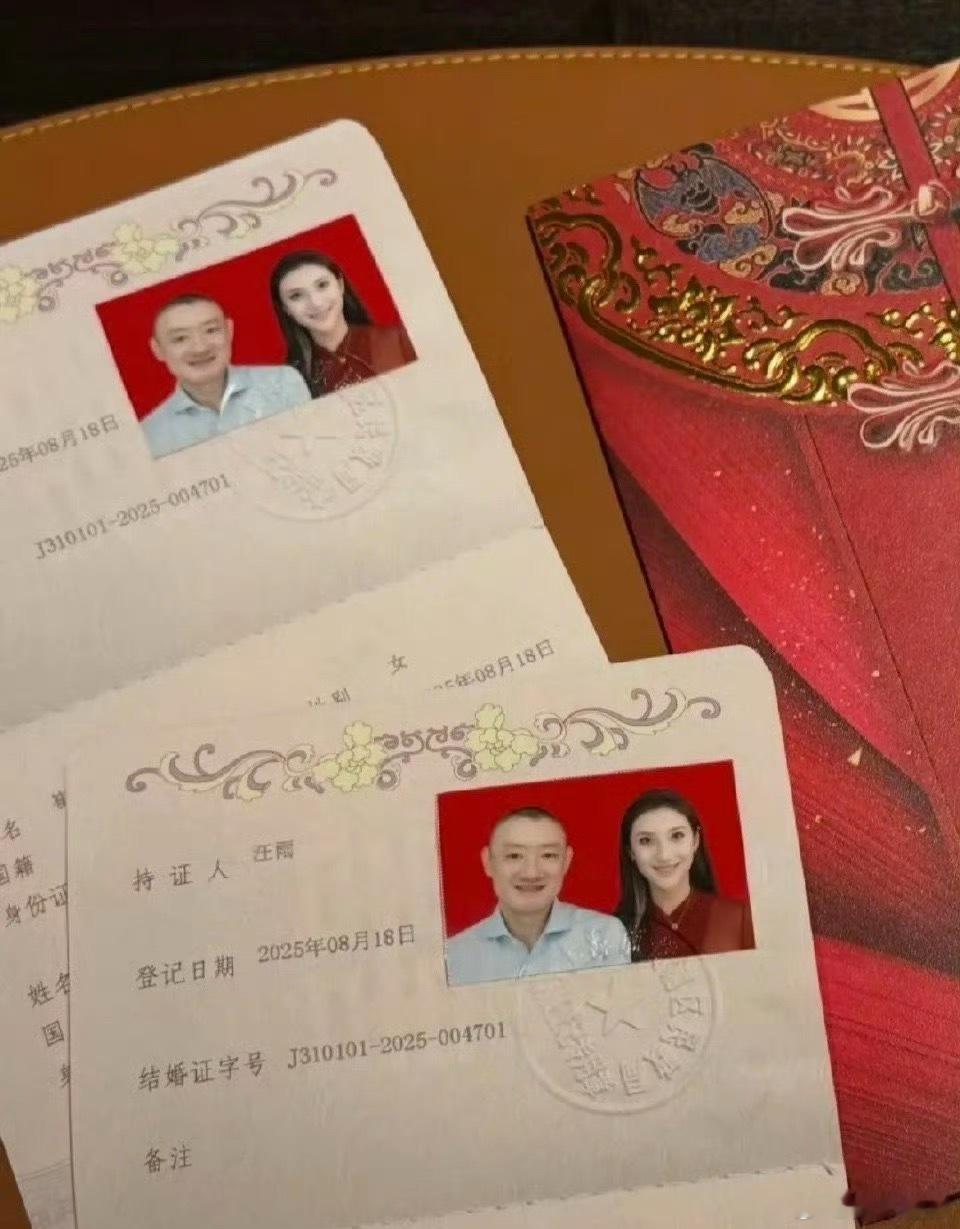 25年08月18日
J310101-2025-004701
女
08月18日
名
国籍
身份证
姓名
国
持证人 汪雨
登记日期 2025年08月18日
结婚证字号 J310101-2025-004701
备注